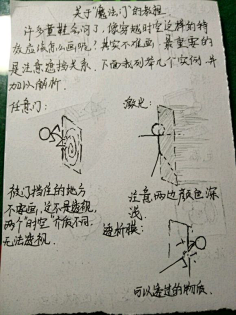 关于"魔法门"的教程
许多萤鞋会问了，像穿越时空这样的特
效应该怎么画呢？其实不难画，最重要的
是注意遮挡关系，下面我列举几个实例，并
加以解析.
任意门：
激光：
被门挡住的地方
不要画，这不是透视，
两个"时空"介质不同.
无法透视.
注意两边颜色深
浅.
透析膜：
可以透过的物质.